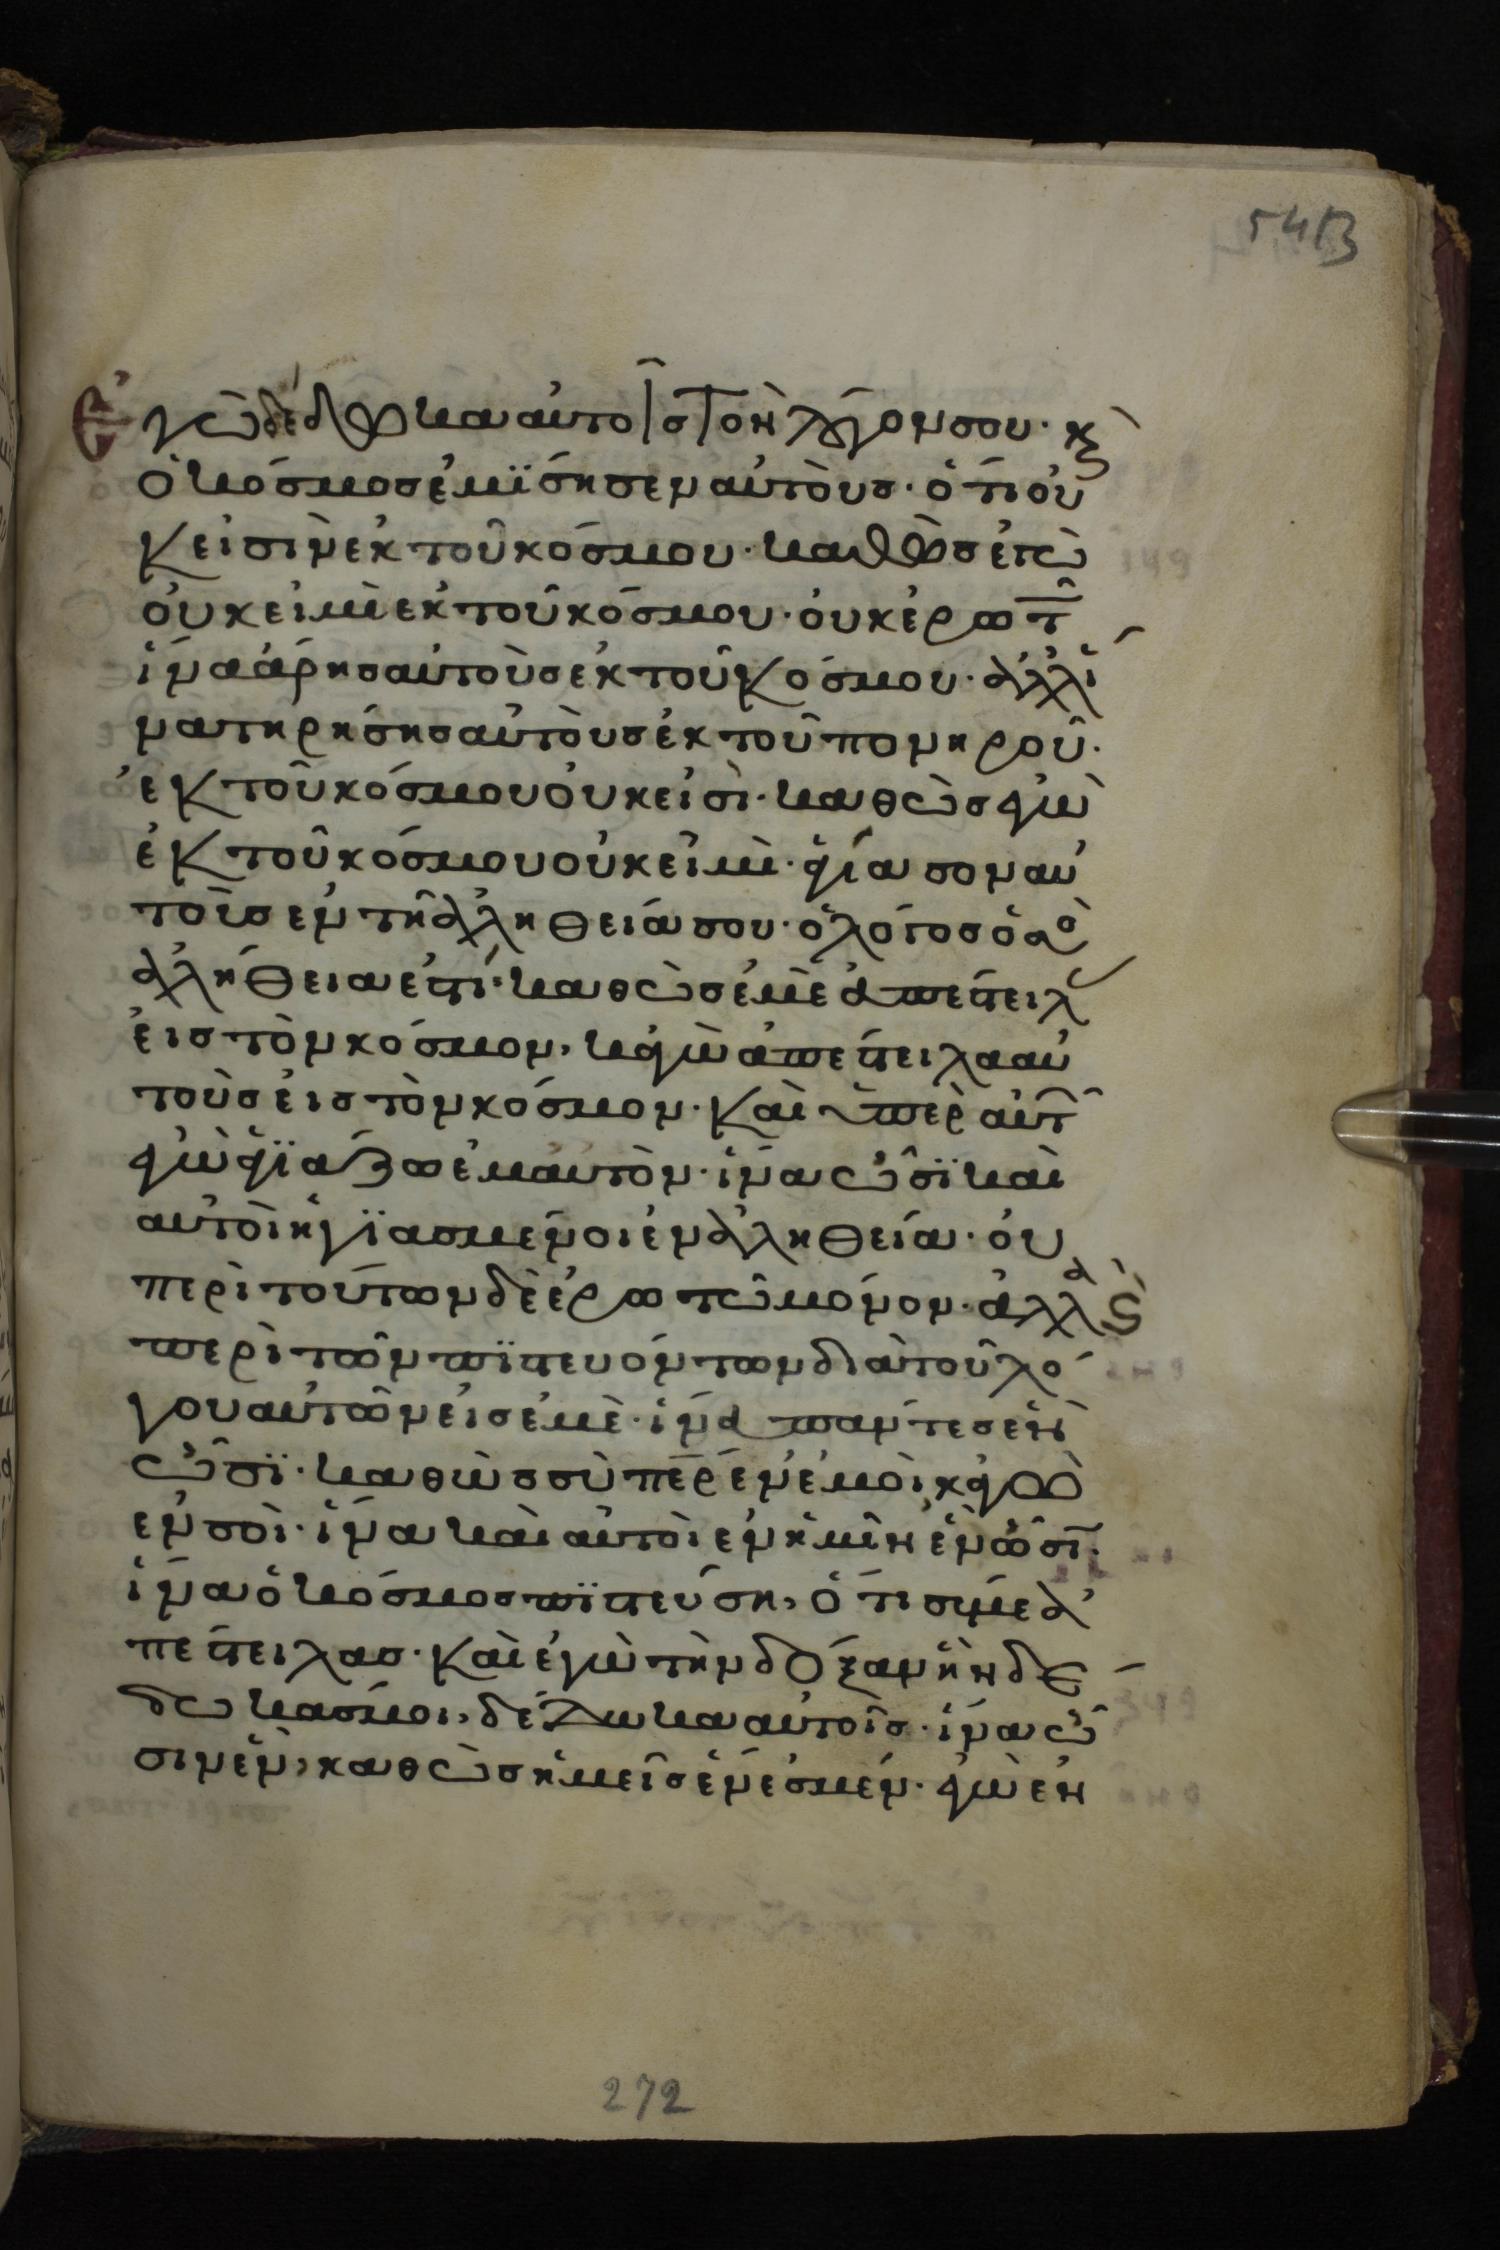 541B
Ἐγὼ δέδωκα αὐτοῖς τὸν λόγον σου· κ(αὶ)
ὁ κόσμος ἐμΐσησεν αὐτοὺς· ὅτι οὐ
κ εἰσὶν ἐκ τοῦ κόσμου· καθὼς ἐγὼ
οὐκ εἰμὶ ἐκ τοῦ κόσμου· οὐκ ἐρωτῶ
ἵνα ἄρης αὐτοὺς ἐκ τοῦ κόσμου· ἀλλ' ἵ
να τηρήσης αὐτοὺς ἐκ τοῦ πονηροῦ·
ἐκ τοῦ κόσμου οὐκ εἰσὶ· καθὼς ἐγὼ
ἐκ τοῦ κόσμου οὐκ εἰμὶ· ἁγίασον αὐ
τοῖς ἐν τῆ ἀληθεία σου· ὁ λόγος ὁ σὸς
ἀλήθεια ἐστί· καθὼς ἐμὲ ἀπέστειλ
εἰς τὸν κόσμον, κἀγὼ ἀπέστειλα αὐ
τοὺς εἰς τὸν κόσμον· καὶ ὑπὲρ αὐτῶν
ἐγὼ ἁγϊάζω ἐμαυτὸν· ἵνα ὦσϊ καὶ
αὐτοὶ ἡγϊασμένοι ἐν ἀληθεία· οὐ
περὶ τούτων δὲ ἐρωτῶ μόνον· ἀλλὰ ς
περὶ τῶν πϊστευόντων διὰ τοῦ λό
γου αὐτῶν εἰς ἐμὲ· ἵνα πάντες ἓν
ὦσϊ· καθὼς σὺ περ ἐν ἐμοὶ κἀγὼ
ἐν σοὶ· ἵνα καὶ αὐτοὶ ἐν ἡμῖν ἓν ὦσϊ·
ἵνα ὁ κόσμος πϊστεύση, ὅτι σύ με ἀ
πέστειλας· καὶ ἐγὼ τὴν δόξαν ἣν δέ
δωκας μοι, δέδωκα αὐτοῖς· ἵνα ὦ
σιν ἓν, καθὼς ἡμεῖς ἕν ἐσμέν· ἐγὼ ἐν
272